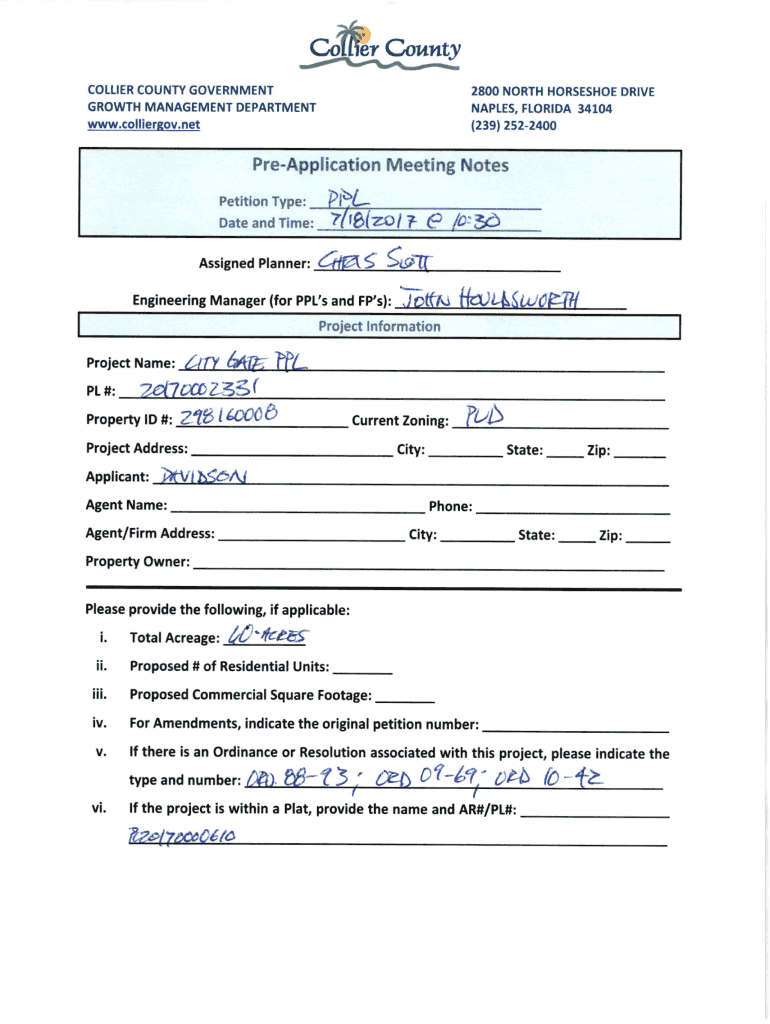 Collier County
COLLIER COUNTY GOVERNMENT
GROWTH MANAGEMENT DEPARTMENT
www.colliergov.net
2800 NORTH HORSESHOE DRIVE
NAPLES, FLORIDA 34104
(239) 252-2400
Pre-Application Meeting Notes
Petition Type: PPL
Date and Time: 7/18/2017 @ 10:30
Assigned Planner: CHRIS SCOTT
Engineering Manager (for PPL's and FP's): JOHN HOULDSWORTH
Project Information
Project Name: CITY GATE PPL
PL #: 20170002331
Property ID #: 298160008 Current Zoning: PUD
Project Address: City: State: Zip:
Applicant: DAVIDSON
Agent Name: Phone:
Agent/Firm Address: City: State: Zip:
Property Owner:
Please provide the following, if applicable:
i. Total Acreage: 60-ACRES
ii. Proposed # of Residential Units:
iii. Proposed Commercial Square Footage:
iv. For Amendments, indicate the original petition number:
v. If there is an Ordinance or Resolution associated with this project, please indicate the
type and number: ORD. 88-93; ORD 09-69; ORD 10-42
vi. If the project is within a Plat, provide the name and AR#/PL#:
PL20170000610